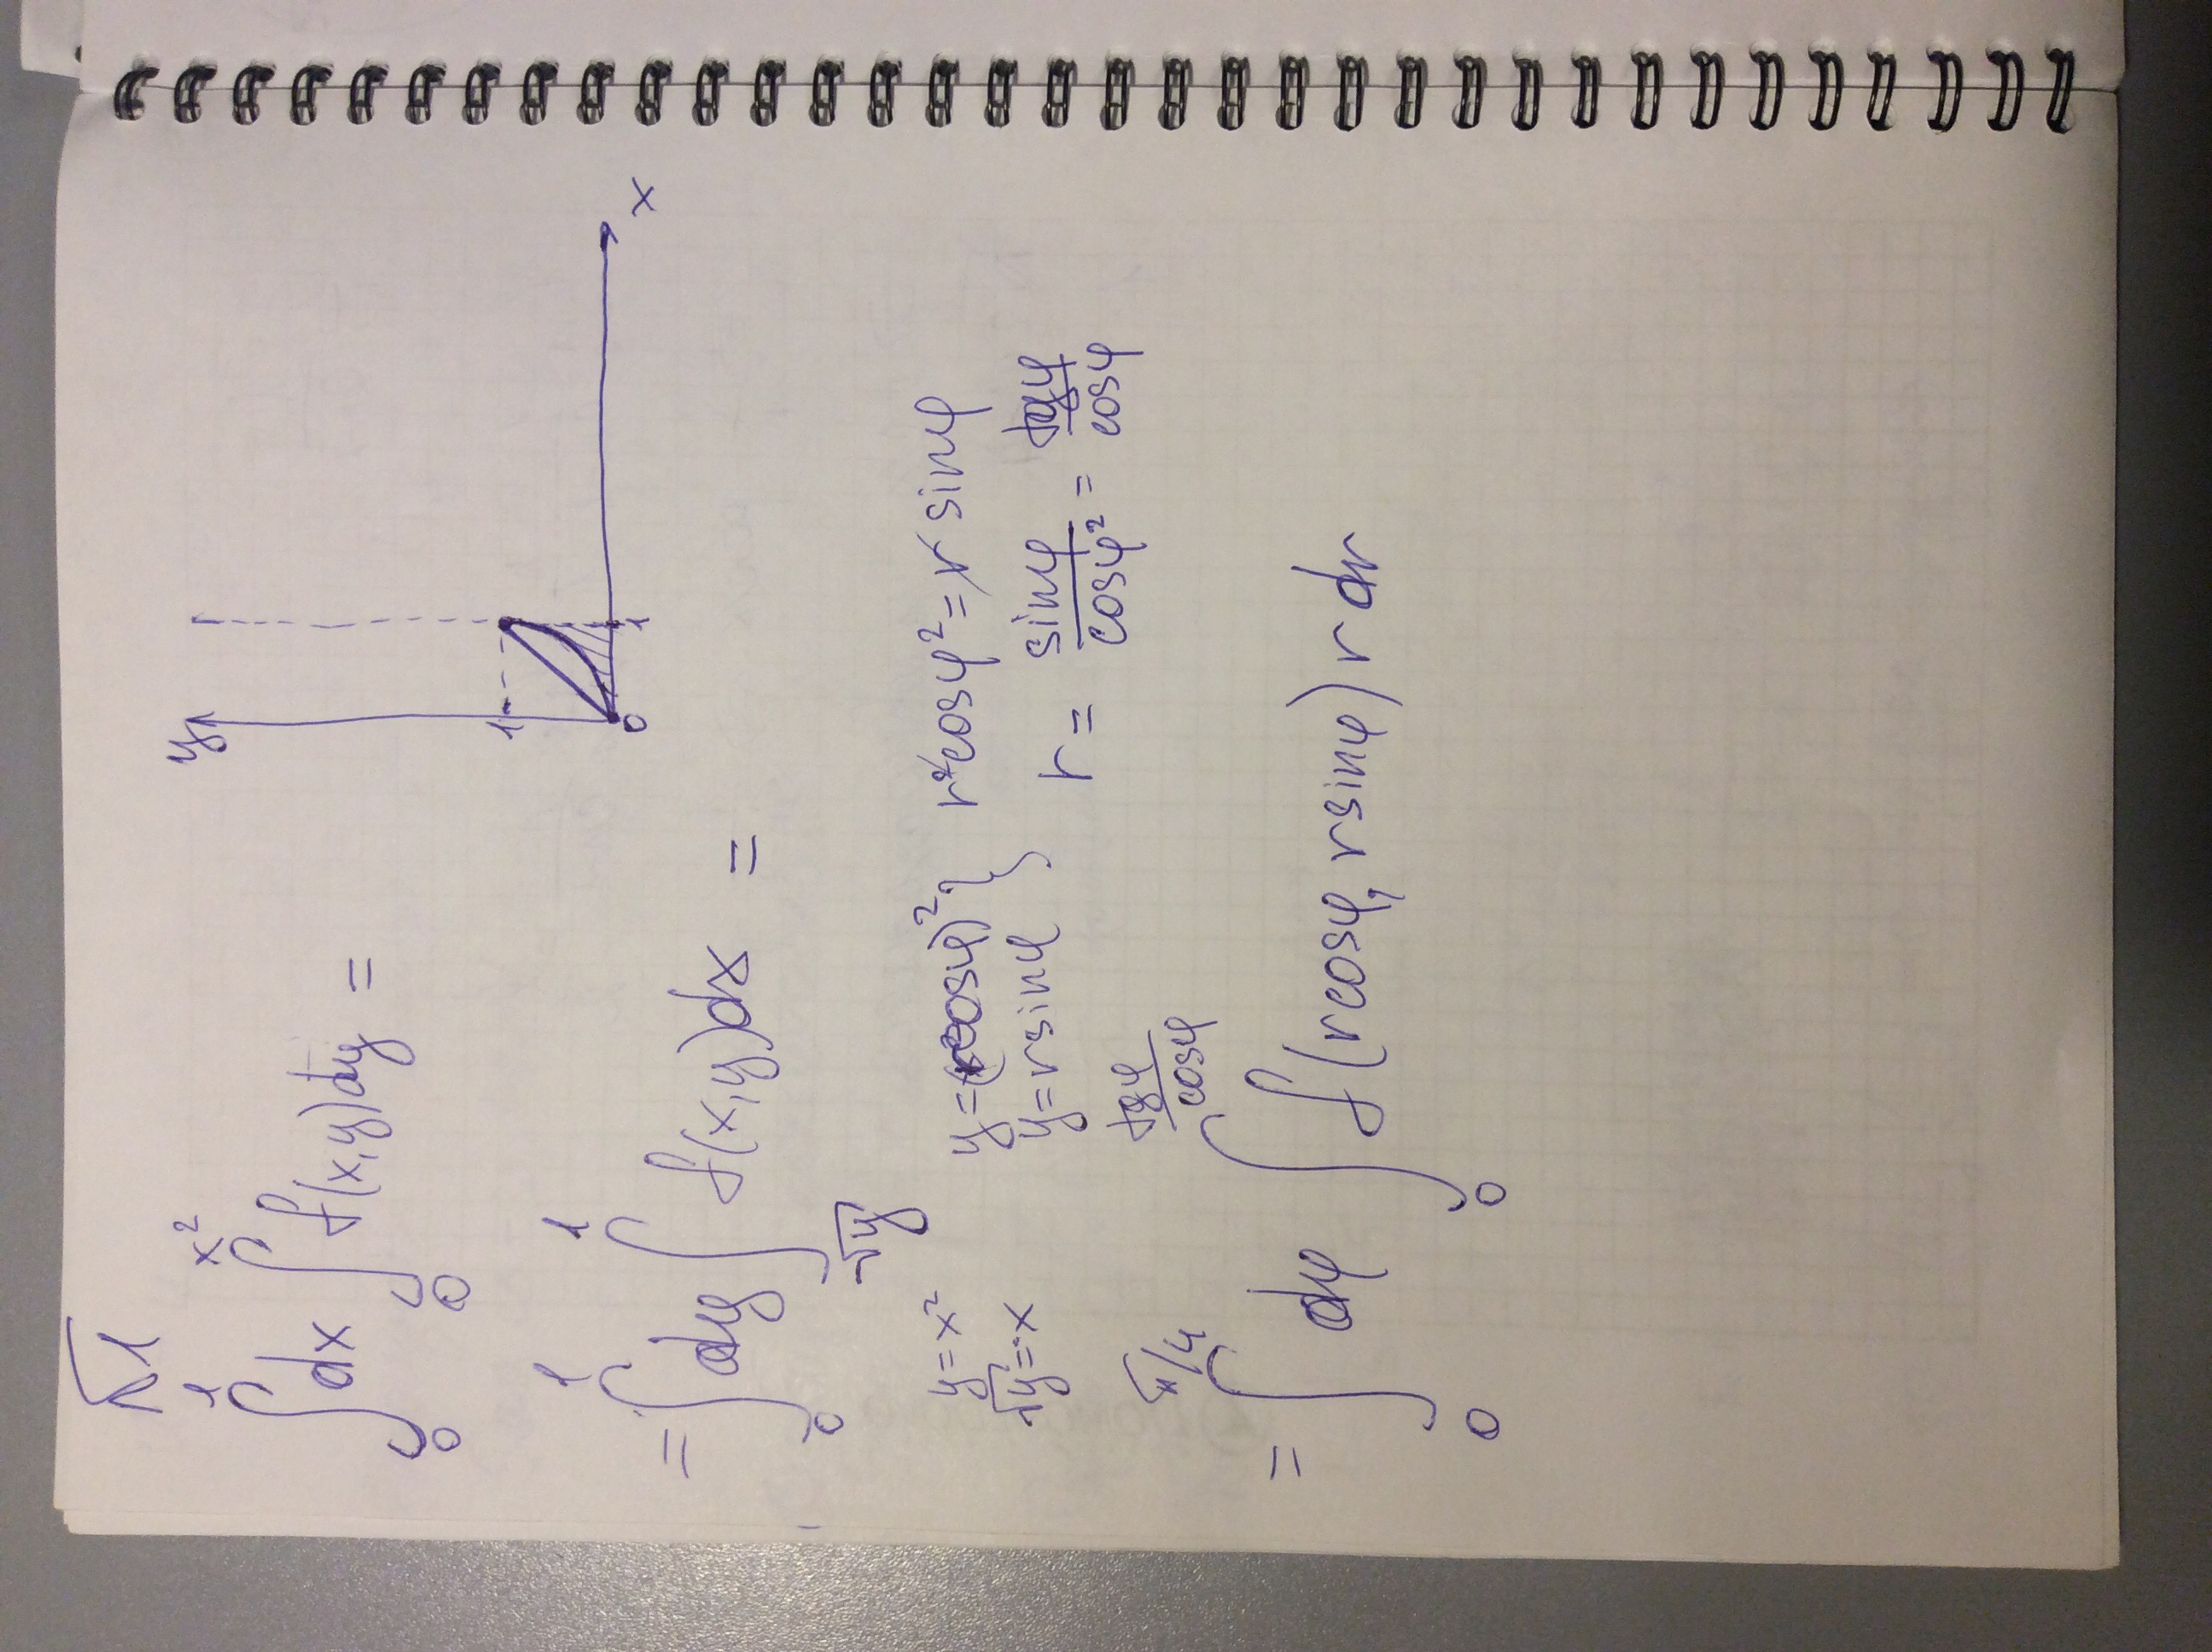 √1
∫₀¹ dx ∫₀^{x²} f(x,y)dy =
y
1
0
1
x
= ∫₀¹ dy ∫_{√y}^{1} f(x,y)dx =
y=x²
√y=x
y=(rcosφ)²
y=rsinφ
r²cosφ²=r sinφ
r = sinφ/cosφ² = tgφ/cosφ
= ∫₀^{π/4} dφ ∫₀^{tgφ/cosφ} f(rcosφ, rsinφ) r dr